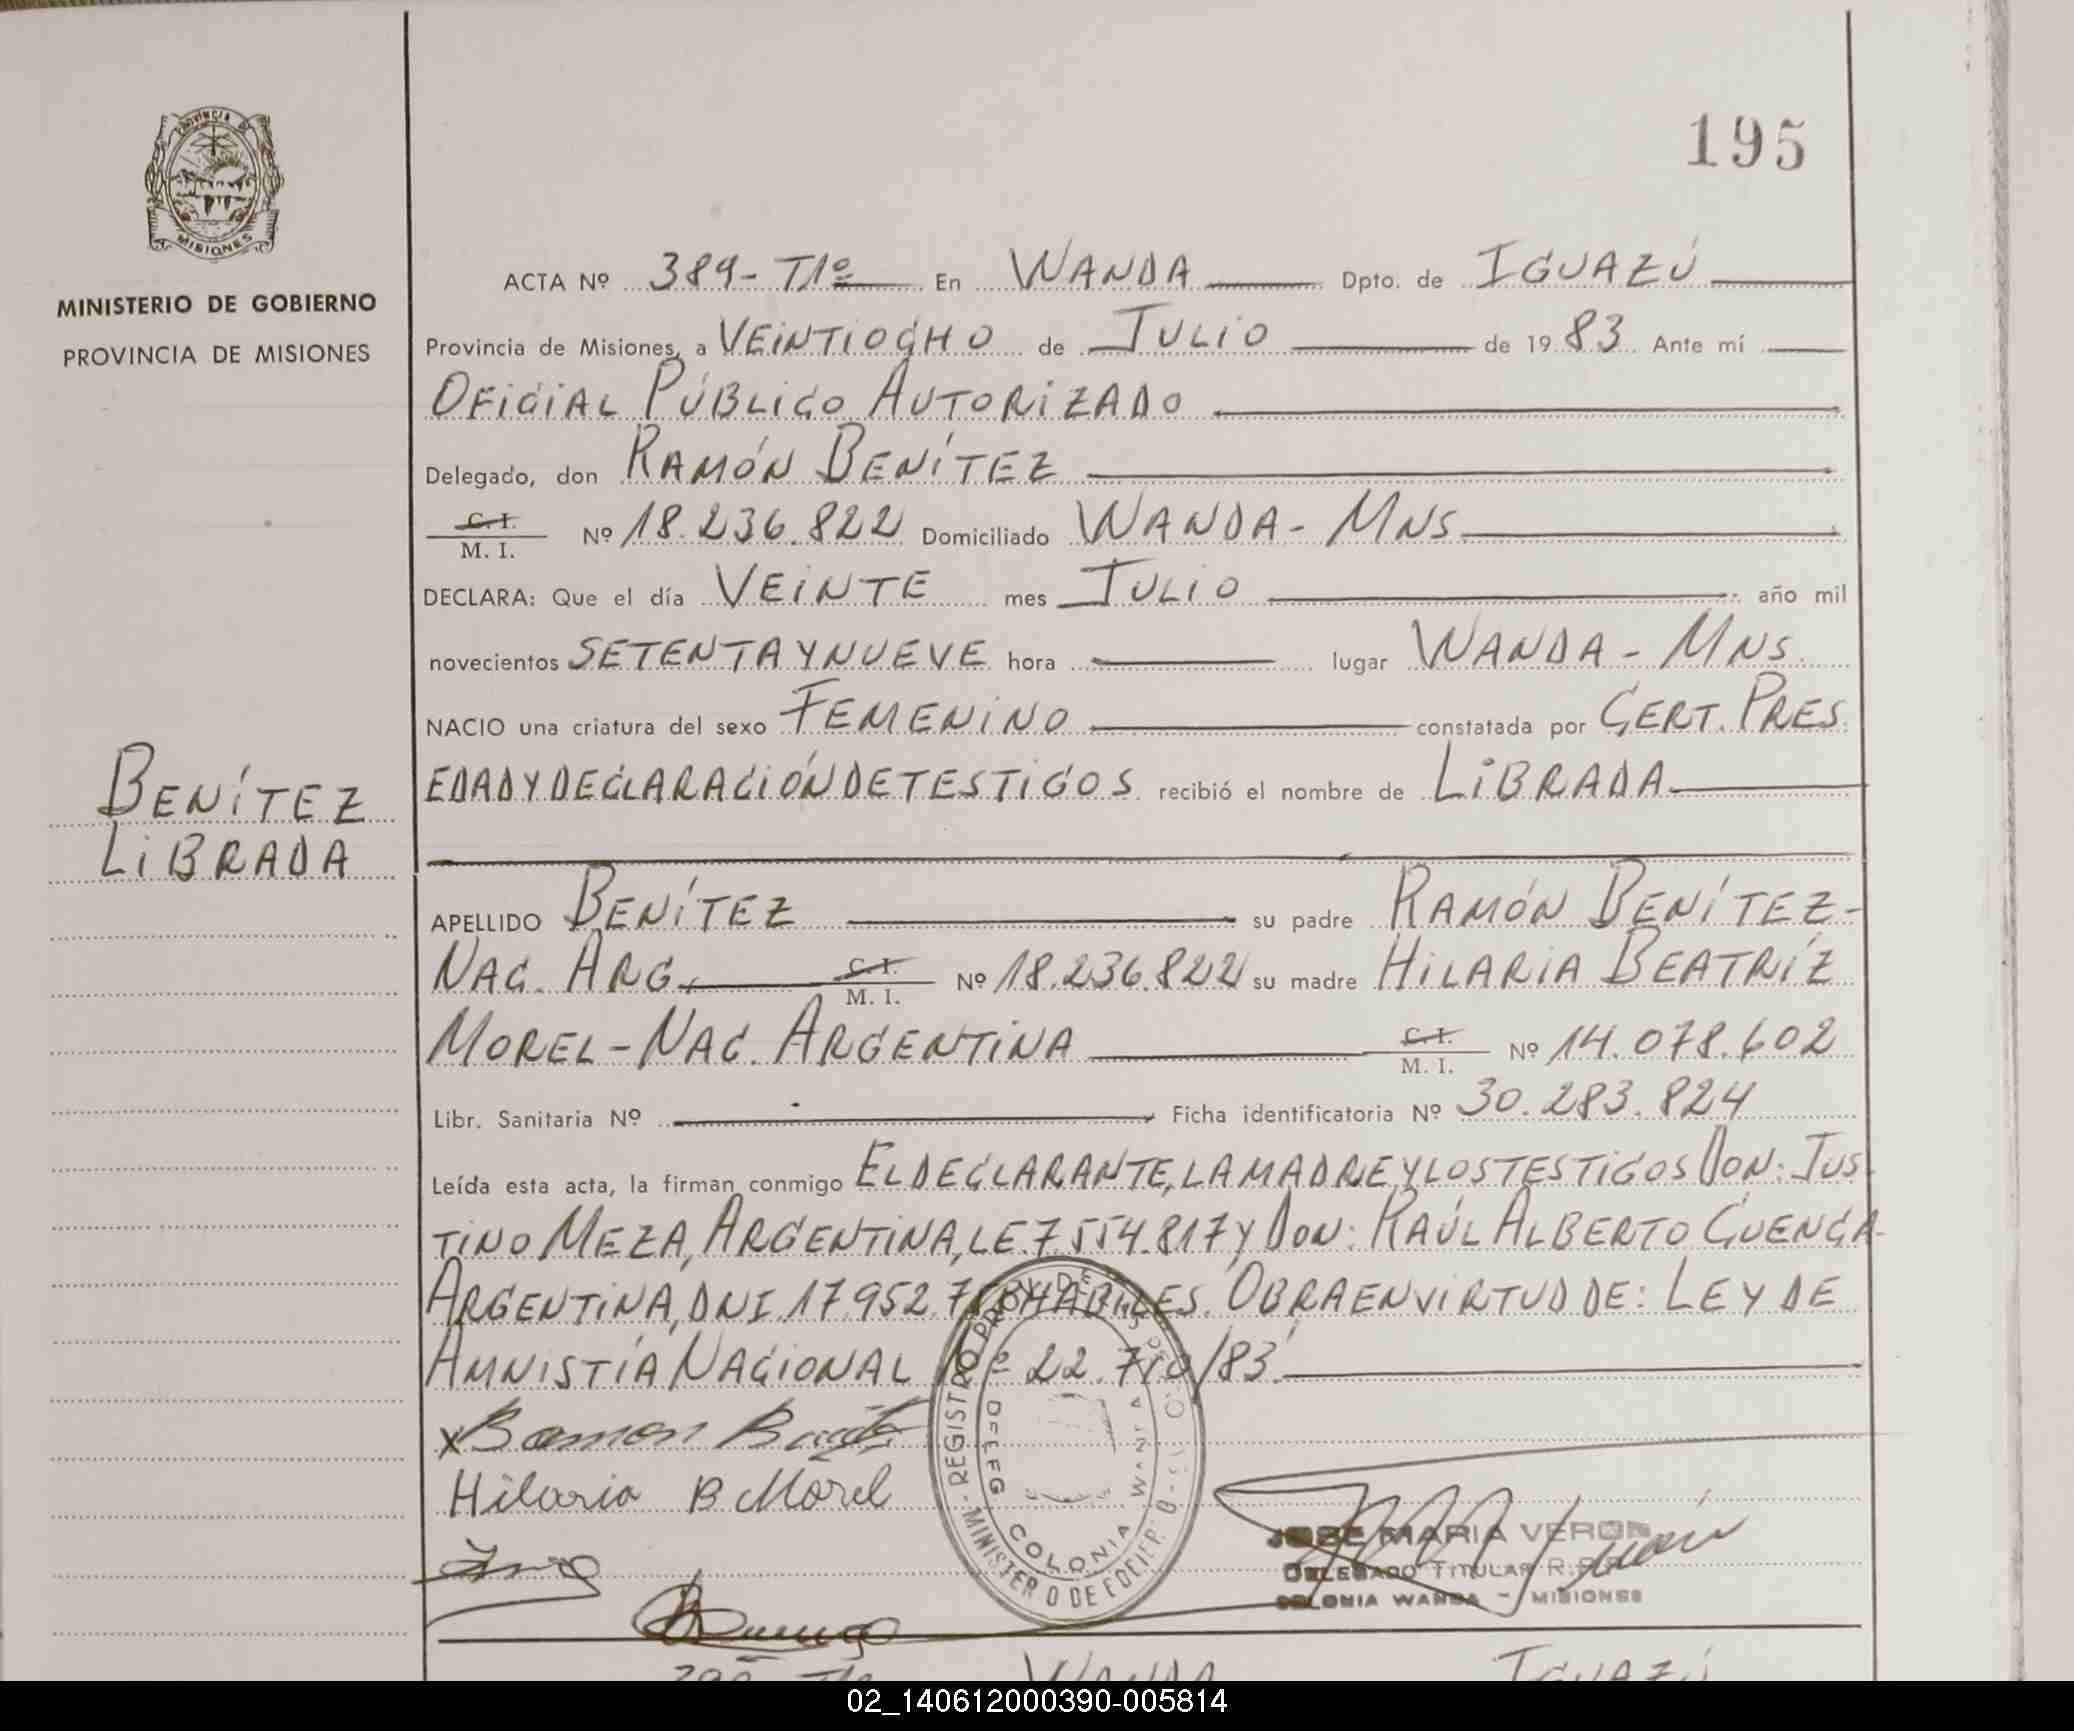 PROVINCIA DE
MISIONES
MINISTERIO DE GOBIERNO
PROVINCIA DE MISIONES
195
ACTA Nº 389-T1º En WANDA Dpto. de IGUAZÚ
Provincia de Misiones, a VEINTIOCHO de JULIO de 1983 Ante mí
OFICIAL PÚBLICO AUTORIZADO
Delegado, don RAMÓN BENÍTEZ
C. I.
M. I. Nº 18.236.822 Domiciliado WANDA - MNS
DECLARA: Que el día VEINTE mes JULIO año mil
novecientos SETENTA Y NUEVE hora lugar WANDA - MNS.
NACIO una criatura del sexo FEMENINO constatada por CERT. PRES.
EDAD Y DECLARACIÓN DE TESTIGOS recibió el nombre de LIBRADA
BENÍTEZ
LIBRADA
APELLIDO BENÍTEZ su padre RAMÓN BENÍTEZ-
NAC. ARG. C. I. M. I. Nº 18.236.822 su madre HILARIA BEATRÍZ
MOREL - NAC. ARGENTINA C. I. M. I. Nº 14.078.602
Libr. Sanitaria Nº Ficha identificatoria Nº 30.283.824
Leída esta acta, la firman conmigo EL DECLARANTE, LA MADRE Y LOS TESTIGOS DON: JUS
TINO MEZA, ARGENTINA, LE. 7.554.817 Y DON: RAÚL ALBERTO CUENCA-
ARGENTINA, DNI. 17.952. HABILES. OBRA EN VIRTUD DE: LEY DE
AMNISTÍA NACIONAL Nº 22.710/83.
x Ramon Benítez
Hilaria B Morel
REGISTRO PROV. DE
DELEG COLONIA WANDA
MINISTERIO DE
JOSE MARIA VERON
DELEGADO TITULAR R.P.P.
COLONIA WANDA - MISIONES
WANDA IGUAZÚ
02_140612000390-005814